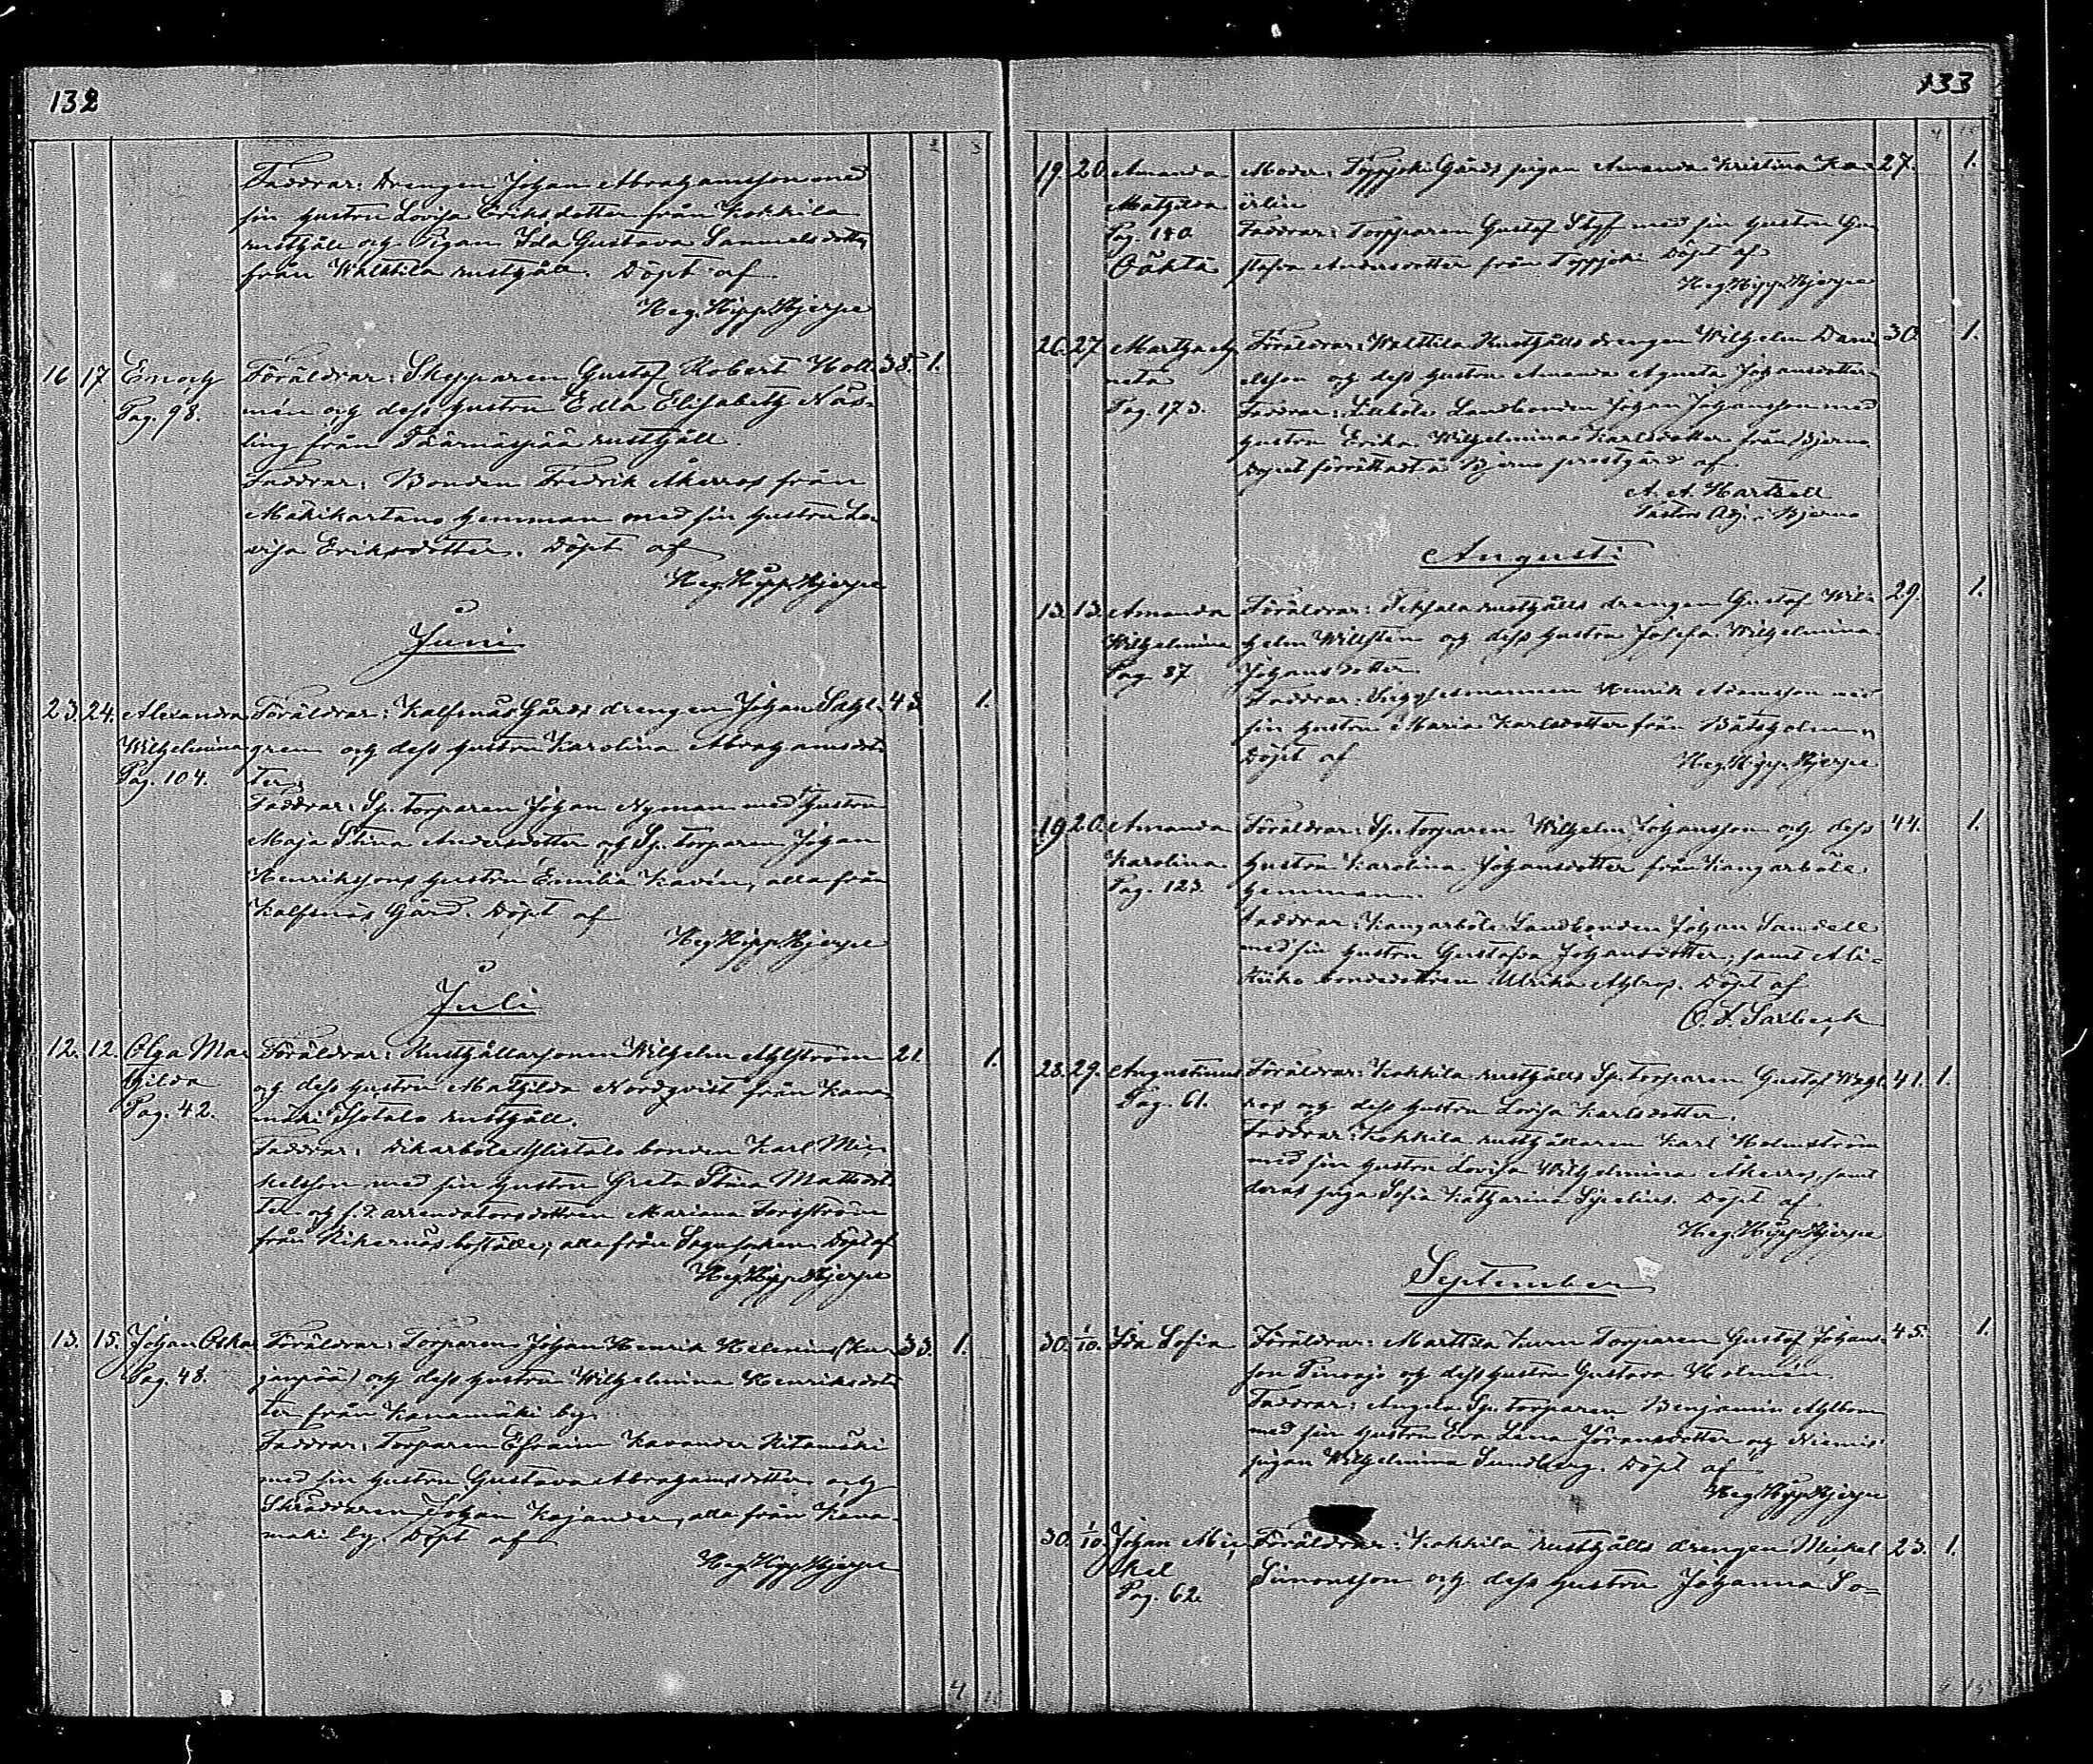 132
Faddrar: Drengen Johan Abrahamsson med
sin hustru Lovisa Eriksdotter från Kokkila
rusthåll och Pigan Ida Gustava Samuelsdotter
från Walttila rusthåll. Döpt af
Heg. Hipp. Hjerpe
16 17 Enoch Föräldrar: Skepparen Gustaf Robert Holl- 38. 1.
Pag. 98. mén och dess hustru Edla Elisabeth Näs-
ling från rusthåll.
Faddrar: Bonden Fredrik Åkerros från
Mäkikartano hemman med sin hustru Lo-
visa Eriksdotter. Döpt af
Heg. Hipp. Hjerpe
Juni
23. 24. Alexandra Föräldrar: Kalfsnäs Gårds drengen Johan Sahl- 43 1.
Wilhelmina gren och dess hustru Karolina Abrahamsdot-
Pag. 104. ter.
Faddrar: Sp. torparen Johan Nyman med hustru
Maja Stina Andersdotter och Sp. torparen Johan
Henrikssons hustru Emilia Kavén, alla från
Kalfsnäs Gård. Döpt af
Heg. Hipp. Hjerpe
Juli
12. 12. Olga Mat- Föräldrar: Rusthållarsonen Wilhelm Ahlström 21. 1.
hilda och dess hustru Mathilda Nordqvist från Kana-
Pag. 42. mäki rusthåll.
Faddrar: bonden Karl Mi-
kelsson med sin hustru Greta Stina Mattsdot-
ter och f.d. arrendatorsdottren Mariana Forsström
från boställe; alla från Sagu socken. Döpt af
Heg. Hipp. Hjerpe
13. 15. Johan Oskar Föräldrar: Torparen Johan Henrik Helenius (Ku- 33. 1.
Pag. 48. janpää) och dess hustru Wilhelmina Henriksdot-
ter från Kanamäki by.
Faddrar: Torparen Efraim Kavander
med sin hustru Gustava Abrahamsdotter och
Skräddaren Johan Kajander, alla från Kana-
mäki by. Döpt af
Heg. Hipp. Hjerpe
133
19. 20. Amanda Moder: Toppjoki Gårds pigan Amanda Kristina Ka- 27. 1.
Mathilda
Pag. 180 Faddrar: Torparen Gustaf Styf med sin hustru Gu-
Oäkta stafva Andersdotter från Toppjoki. Döpt af
Heg. Hipp. Hjerpe
26. 27. Martha Ag- Föräldrar: Walttila Rusthålls drengen Wilhelm Dani- 30. 1.
neta elsson och dess hustru Amanda Agneta Johansdotter
Pag. 173. Faddrar: Landbonden Johan Johansson med
hustru Erika Wilhelmina Karlsdotter från Bjerno
Dopet förrättadt å Bjerno prestgård af
A. A. Hartzell
Pastors Adj. i Bjerno
Augusti
13. 13. Amanda Föräldrar: rusthålls drengen Gustaf Wil- 29. 1.
Wilhelmina helm Willsten och dess hustru Josefa Wilhelmina
Pag. 37 Johansdotter
Faddrar: Henrik Adamsson med
sin hustru Maria Karlsdotter från Båtsholm.
Döpt af Heg. Hipp. Hjerpe
19 20. Amanda Föräldrar: Sp. torparen Wilhelm Johansson och dess 44. 1.
Karolina hustru Karolina Johansdotter från Kangarböle
Pag. 123. hemman.
Faddrar: Kangarböle Landbonden Johan Sandell
med sin hustru Gustafva Johansdotter, samt Ali-
bondedottren Ulrika Ahlros. Döpt af
O. F. Saxbeck
28. 29. Augustinus Föräldrar: Kokkila rusthålls Sp. torparen Gustaf Wahl- 41. 1.
Pag. 61. ros och dess hustru Lovisa Karlsdotter.
Faddrar: Kokkila rusthållaren Karl Holmström
med sin hustru Lovisa Wilhelmina Åkerros, samt
deras piga Sofia Katharina Sjelius. Döpt af
Heg. Hipp. Hjerpe
September
30. 1/10. Ida Sofia Föräldrar: Marttila Torparen Gustaf Johans- 45. 1.
son och dess hustru Gustava Holmén.
Faddrar: Angela Sp. torparen Benjamin Ahlbom
med sin hustru Eva Lena Jöransdotter och Niemis
pigan Wilhelmina Sundberg. Döpt af
Heg. Hipp. Hjerpe
30. 1/10. Johan Mi- Föräldrar: Kokkila rusthålls drengen Mikel 23. 1.
kel Simonsson och dess hustru Johanna So-
Pag. 62.